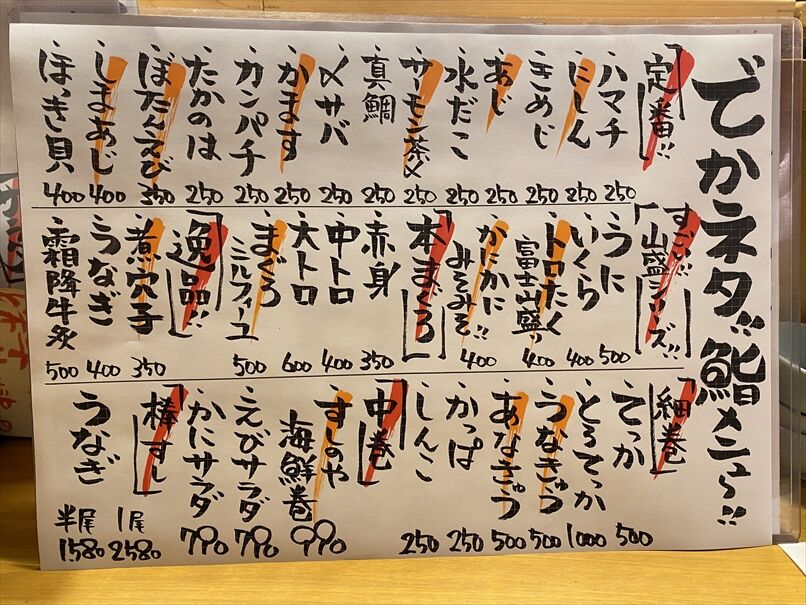 でかネタ!!鮨メニュー!!
「定番!!」
ハマチ 250
にしん 250
きめじ 250
あじ 250
水だこ 250
サーモン茶〆 250
真鯛 250
〆サバ 250
かます 250
カンパチ 250
たかのは 250
ぼたんえび 350
しまあじ 400
ほっき貝 400
すごい!!
「山盛シリーズ!!」
うに 500
いくら 400
トロたく
富士山盛り 400
かにかに!!
みそみそ 400
「本まぐろ」
赤身 350
中トロ 400
大トロ 600
まぐろ
ミルフィーユ 500
「逸品!!」
煮穴子 350
うなぎ 400
霜降牛炙 500
「細巻」
てっか 500
とろてっか 1000
うなきゅう 500
あなきゅう 500
かっぱ 250
しんこ 250
「中巻」
すしのや
海鮮巻 990
えびサラダ 790
かにサラダ 790
「棒すし」
うなぎ
1尾 2580
半尾 1580